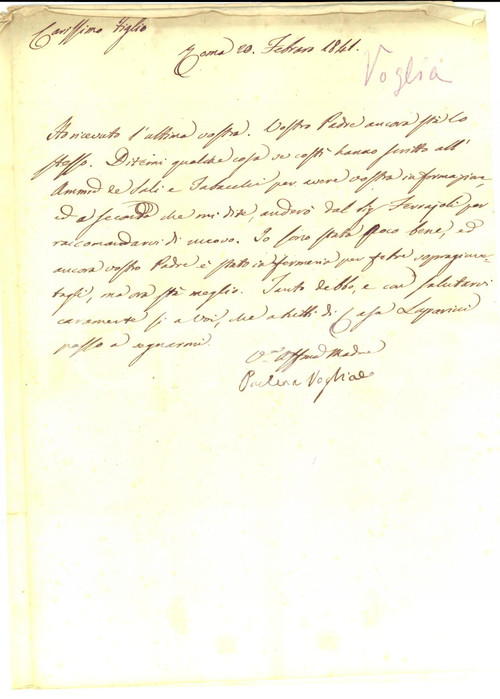 Carissimo Figlio
Roma 20. Febraro 1841.
Voglia
Ho ricevuto l'ultima vostra. Vostro Padre ancora stà lo
stesso. Ditemi qualche cosa se costì hanno scritto all'
Ammne de Sali e Tabacchi per avere vostra informazione,
ed a seconda che mi dite, anderò dal Sig Ferrajoli per
raccomandarvi di nuovo. Io sono stata poco bene, ed
ancora vostro Padre è stato in fermeria per febre sopragiun
tagli, ma ora stà meglio. Tanto debbo, e col salutarvi
caramente sì a voi, che a tutti di Casa
passo a segnarmi.
Affma Madre
Paolina Voglia